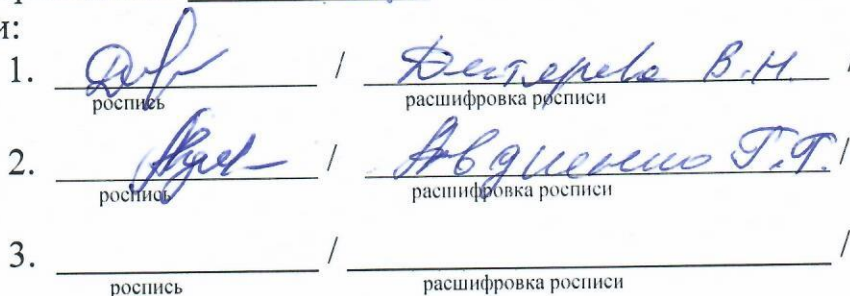 и:
1. / Дегтярева В.Н. /
роспись расшифровка росписи
2. / Авдиенко Г.Г. /
роспись расшифровка росписи
3. / /
роспись расшифровка росписи